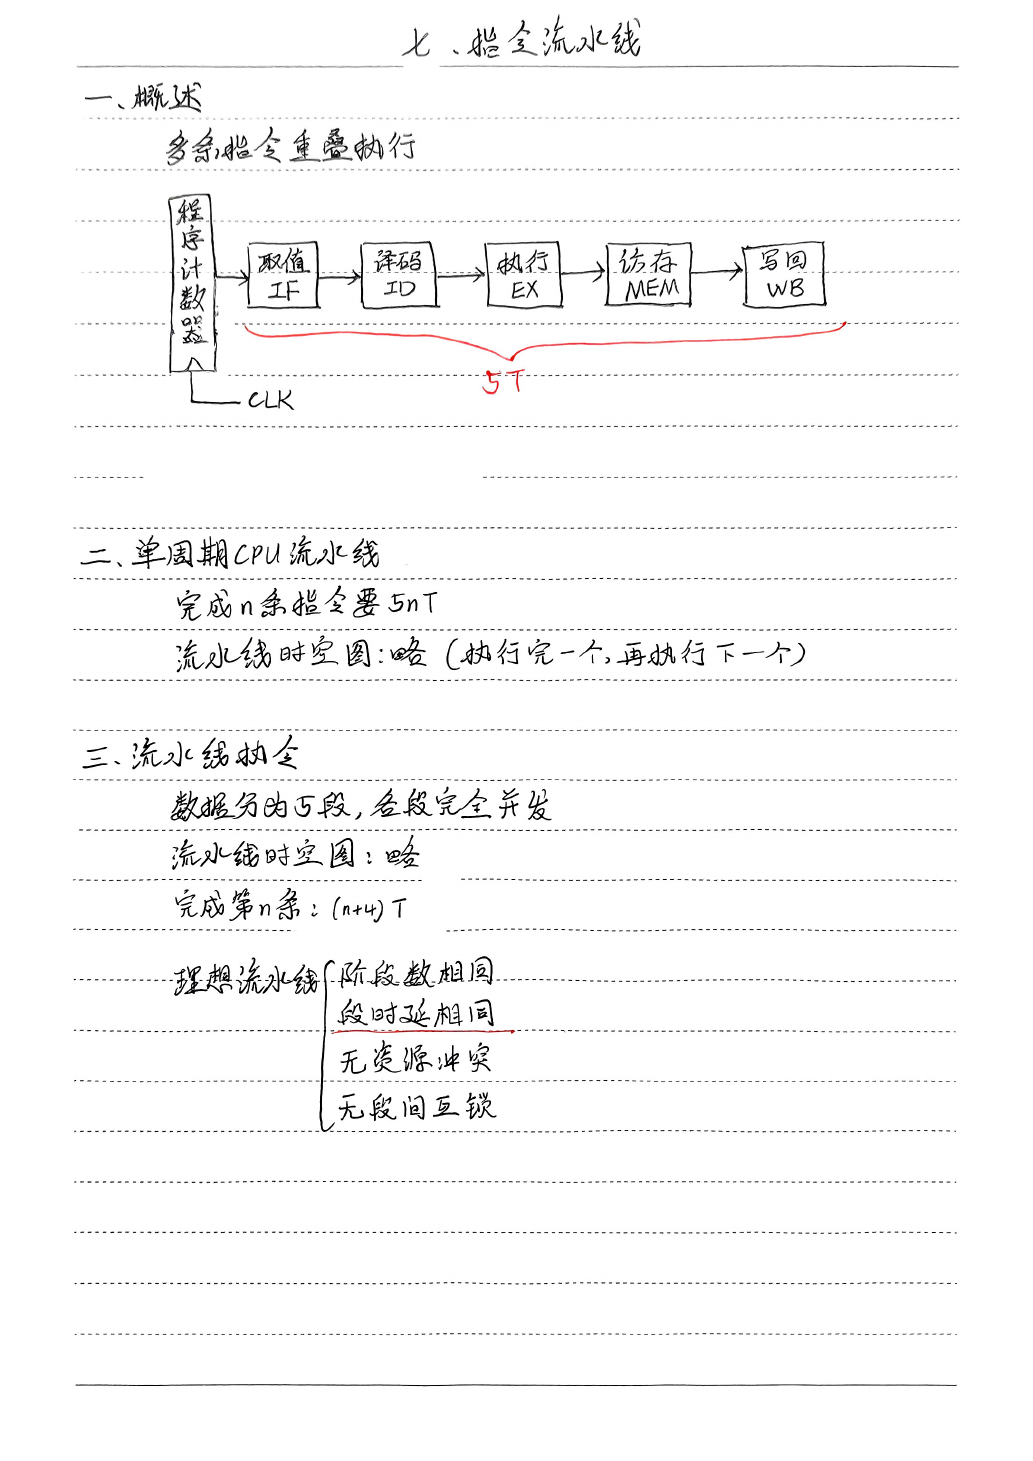 七、指令流水线
一、概述
多条指令重叠执行
程序计数器
取值 IF
译码 ID
执行 EX
访存 MEM
写回 WB
5T
CLK
二、单周期CPU流水线
完成n条指令要5nT
流水线时空图:略(执行完一个,再执行下一个)
三、流水线执令
数据分为5段,各段完全并发
流水线时空图:略
完成第n条:(n+4)T
理想流水线
阶段数相同
段时延相同
无资源冲突
无段间互锁